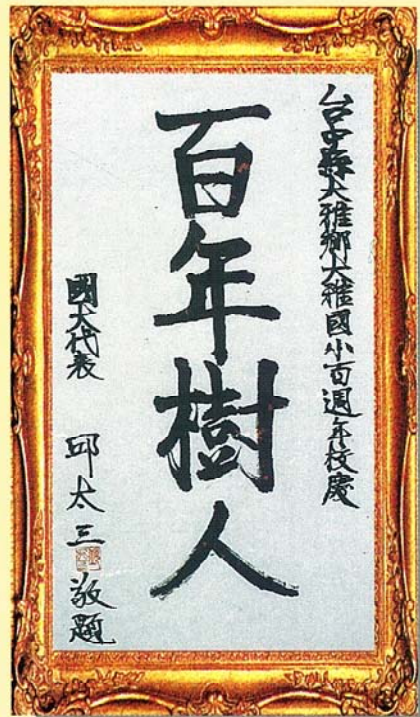 台中縣大雅鄉大雅國小百週年校慶
百年樹人
國大代表 邱太三 敬題